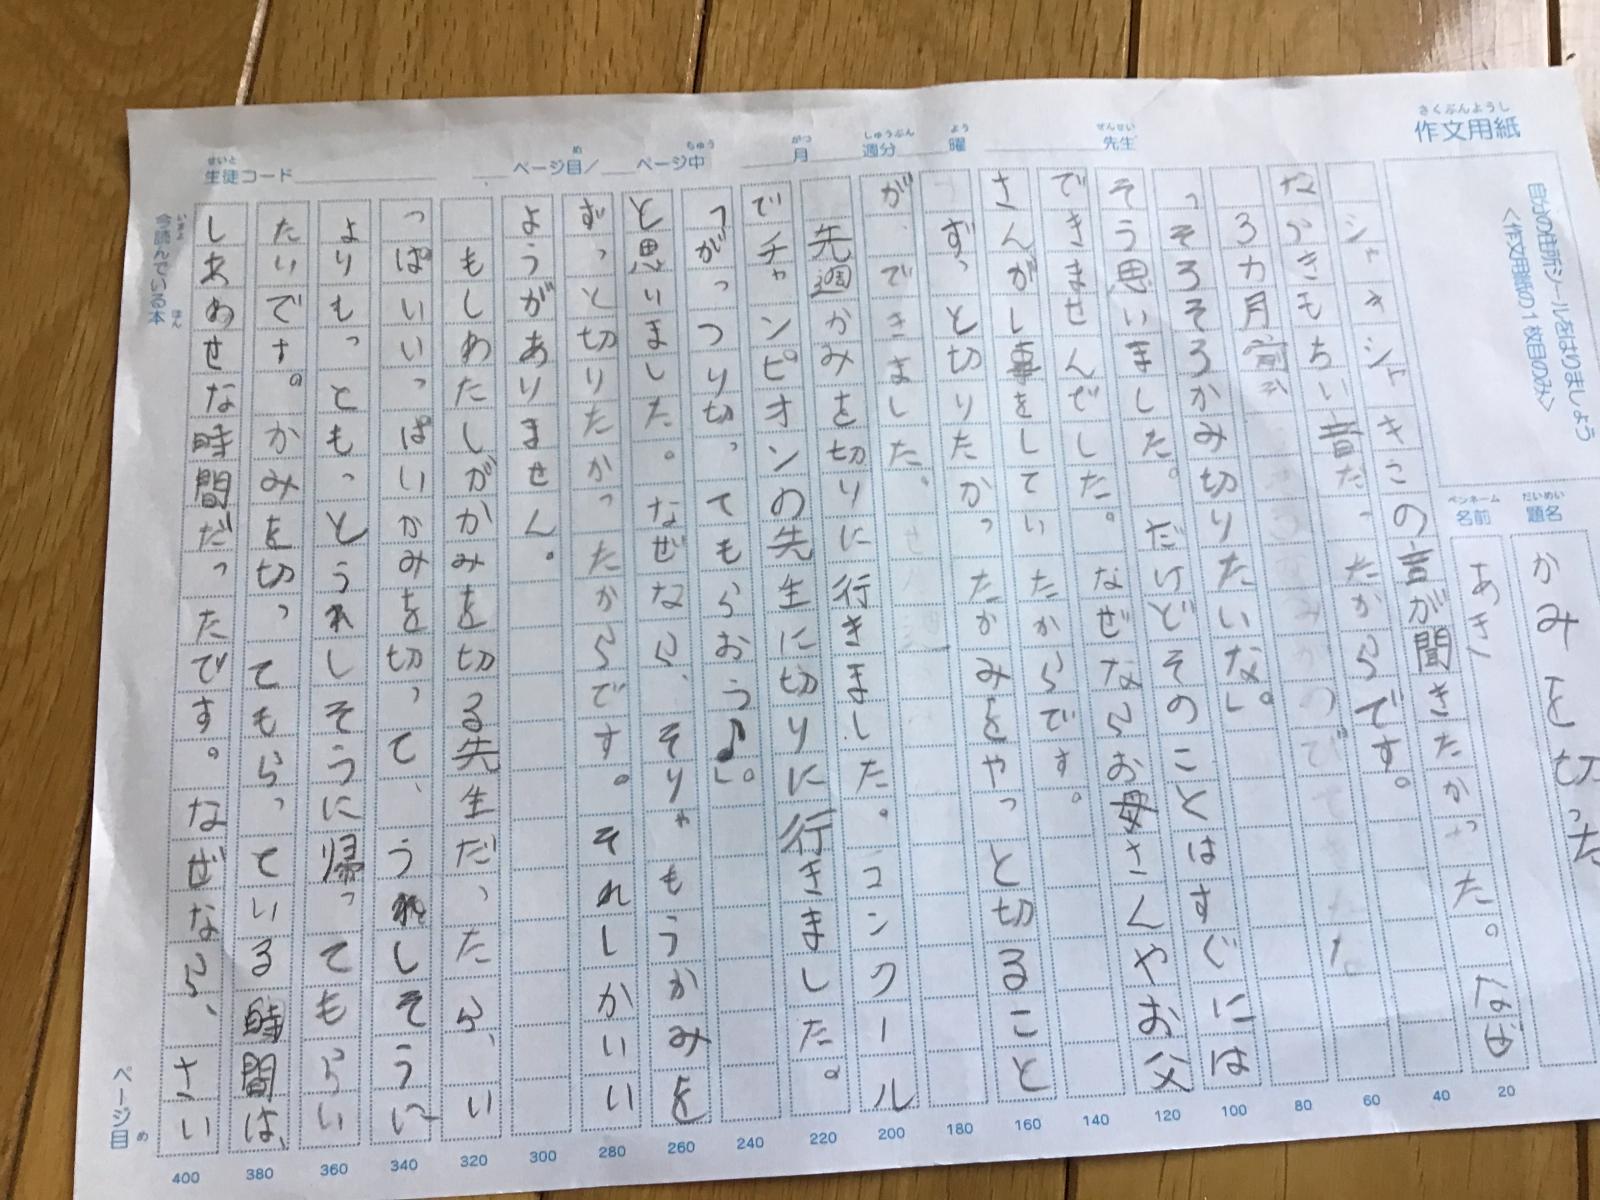 さくぶんようし
作文用紙
自分の住所シールをはりましょう
<作文用紙の1枚目のみ>
せんせい
先生
よう
曜
しゅうぶん
週分
がつ
月
ちゅう
ページ中
め
ページ目/
せいと
生徒コード
だいめい
題名
かみを切った
ペンネーム
名前
あき
シャキシャキこの言が聞きたかった。なぜ
ならきもちい音だったからです。
3カ月前が
「そろそろかみ切りたいな」。
そう思いました。だけどそのことはすぐには
できませんでした。なぜならお母さんやお父
さんがし事をしていたからです。
ずっと切りたかったかみをやっと切ること
が、できました。
先週かみを切りに行きました。コンクール
でチャンピオンの先生に切りに行きました。
「がっつり切ってもらおう♪」。
と思いました。なぜなら、そりゃもうかみを
ずっと切りたかったからです。それしかいい
ようがありません。
もしわたしがかみを切る先生だったら、い
っぱいいっぱいかみを切って、うれしそうに
よりもっともっとうれしそうに帰ってもらい
たいです。かみを切ってもらっている時間は、
しあわせな時間だったです。なぜなら、さい
いまよ ほん
今読んでいる本
ページ目
め
20
40
60
80
100
120
140
160
180
200
220
240
260
280
300
320
340
360
380
400